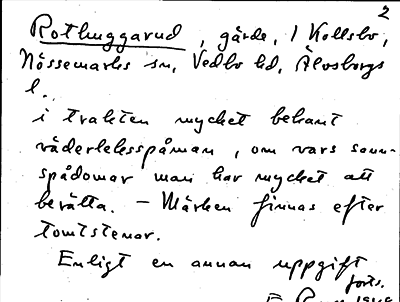 2
Rothuggarud, gärde, / Kollsbo,
Nössemarks sn, Vedbo hd, Älvsborgs
l.
i trakten mycket bekant
väderleksspåman, om vars sann-
spådomar man har mycket att
berätta. – Märken finnas efter
tomtstenar.
Enligt en annan uppgift
forts.